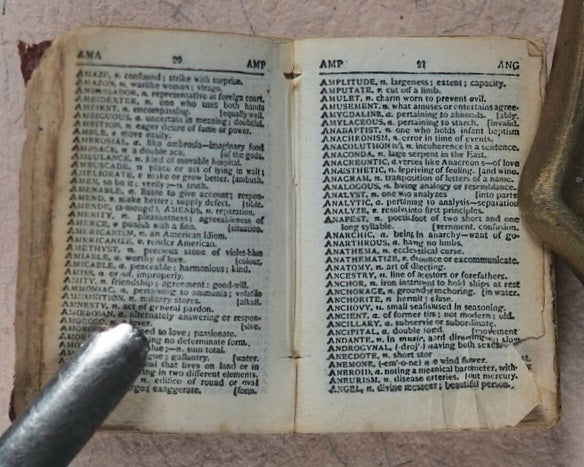 AMA 20 AMP
AMAZE, v. confound; strike with surprise.
AMAZON, n. warlike woman; virago.
AMBASSADOR, n. representative at foreign court.
AMBIDEXTER, n. one who uses both hands
AMBIENT, a. encompassing. [equally well.
AMBIGUOUS, a. uncertain in meaning; doubtful.
AMBITION, n. eager desire of fame or power.
AMBLE, v. move easily.
AMBROSIAL, a. like ambrosia—imaginary food
AMBSACE, n. a double ace. [of the gods.
AMBULANCE, n. kind of movable hospital.
AMBUSCADE, n. place or act of lying in wait;
AMELIORATE, v. make or grow better. [ambush.
AMEN, so be it; verily;—n. truth.
AMENABLE, a. liable to give account; respon-
AMEND, v. make better; supply defect. [sible.
AMENDE, AMENDS, n. reparation.
AMENITY, n. pleasantness; agreeableness of
AMERCE, v. punish with a fine. [situation.
AMERICANISM, n. an American idiom.
AMERICANIZE, v. render American.
AMETHYST, n. precious stone of violet-blue
AMIABLE, a. worthy of love. [colour.
AMICABLE, a. peaceable; harmonious; kind.
AMISS, a. or ad. improperly.
AMITY, n. friendship; agreement; good-will.
AMMONIAC, a. pertaining to ammonia; volatile
AMMUNITION, n. military stores. [alkali.
AMNESTY, n. act of general pardon.
alternately answering or respon-
[sive.
to love; passionate.
no determinate form.
n. sum total.
gallantry. [water.
that lives on land or in
in two different elements.
n. edifice of round or oval
exaggerate. [form.
AMP 21 ANG
AMPLITUDE, n. largeness; extent; capacity.
AMPUTATE, v. cut off a limb.
AMULET, n. charm worn to prevent evil.
AMUSEMENT, n. what amuses or entertains agree-
AMYGDALINE, a. pertaining to almonds. [ably.
AMYLACEOUS, a. pertaining to starch. [invalid.
ANABAPTIST, n. one who holds infant baptism
ANACHRONISM, n. error in time of events.
ANACOLUTHON, n. incoherence in a sentence.
ANACONDA, n. large serpent in the East.
ANACREONTIC, a. verses like Anacreon's—of love
ANAESTHETIC, a. depriving of feeling. [and wine.
ANAGRAM, n. transposition of letters of a name.
ANALOGOUS, a. bearing analogy or resemblance.
ANALYST, n. one who analyzes [into parts
ANALYTIC, a. pertaining to analysis—separation
ANALYZE, v. resolve into first principles.
ANAPEST, n. poetic foot of two short and one
long syllable. [vernment. confusion.
ANARCHIC, a. being in anarchy—want of go-
ANARTHROUS, a. having no limbs.
ANATHEMA, n. ecclesiastical curse.
ANATHEMATIZE, v. denounce or excommunicate.
ANATOMY, n. art of dissecting.
ANCESTRY, n. line of ancestors or forefathers.
ANCHOR, n. iron instrument to hold ships at rest
ANCHORAGE, n. ground for anchoring. [in water.
ANCHORITE, n. hermit; recluse.
ANCHOVY, n. small sea fish used in seasoning.
ANCIENT, a. of former times; not modern; old.
ANCILLARY, a. subservient or subordinate.
ANCIPITAL, a. double faced. [movement
ANDANTE, n. in music, a word directing a slow
ANDROGYNAL, (-droj′-) having both sexes.
ANECDOTE, n. short story
ANEMONE, (-em′-o-ne) n. the wind flower.
ANEROID, a. noting a mechanical barometer, with-
ANEURISM, n. disease of arteries. [out mercury.
ANGEL, n. divine messenger; beautiful person.